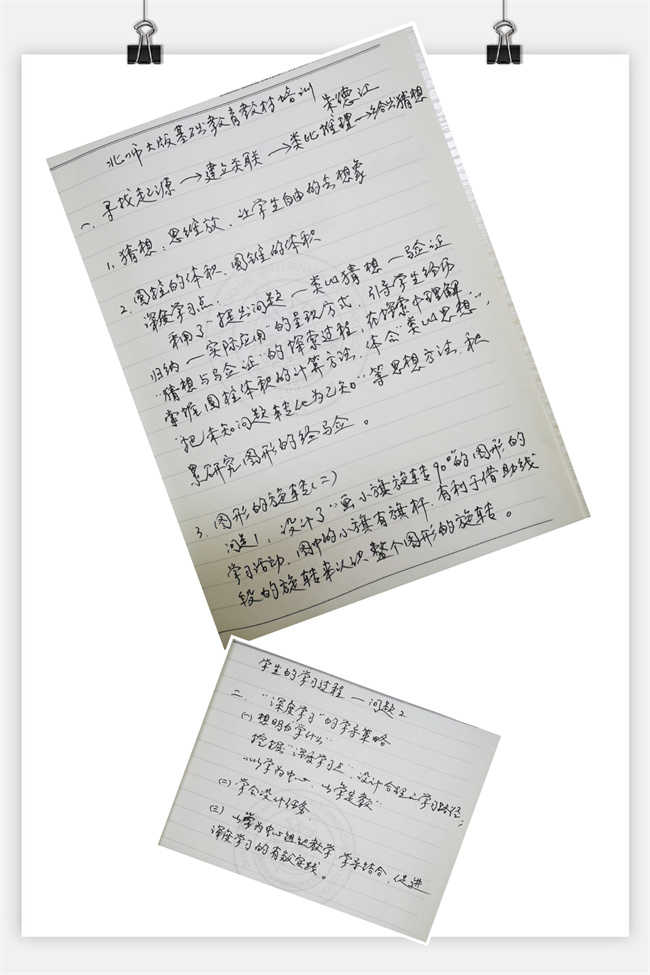 北师大版基础教育教材培训 朱德江
一、寻找起源→建立关联→类比推理→给出猜想
1. 猜想：思维放、让学生自由的去想象
2. 圆柱的体积、圆锥的体积
深度学习点：
利用了“提出问题—类比猜想—验证
归纳—实际应用”的呈现方式，引导学生经历
“猜想与验证”的探索过程，在探索中理解
掌握圆柱体积的计算方法，体会“类比思想”，
“把未知问题转化为已知”等思想方法，积
累研究图形的经验。
3. 图形的旋转(二)
问题1：设计了“画小旗旋转90°”的图形的
学习活动，图中的小旗有旗杆，有利于借助线
段的旋转来认识整个图形的旋转。
学生的学习过程—问题2
二、“深度学习”的学导策略
(一) 想明白学什么”
挖掘“深度学习点”，设计合理之学习路径；
以学为中心，以学定教”
(二) 学会设计任务
(三) 以学为中心组织教学，学导结合，促进
深度学习的有效实践。